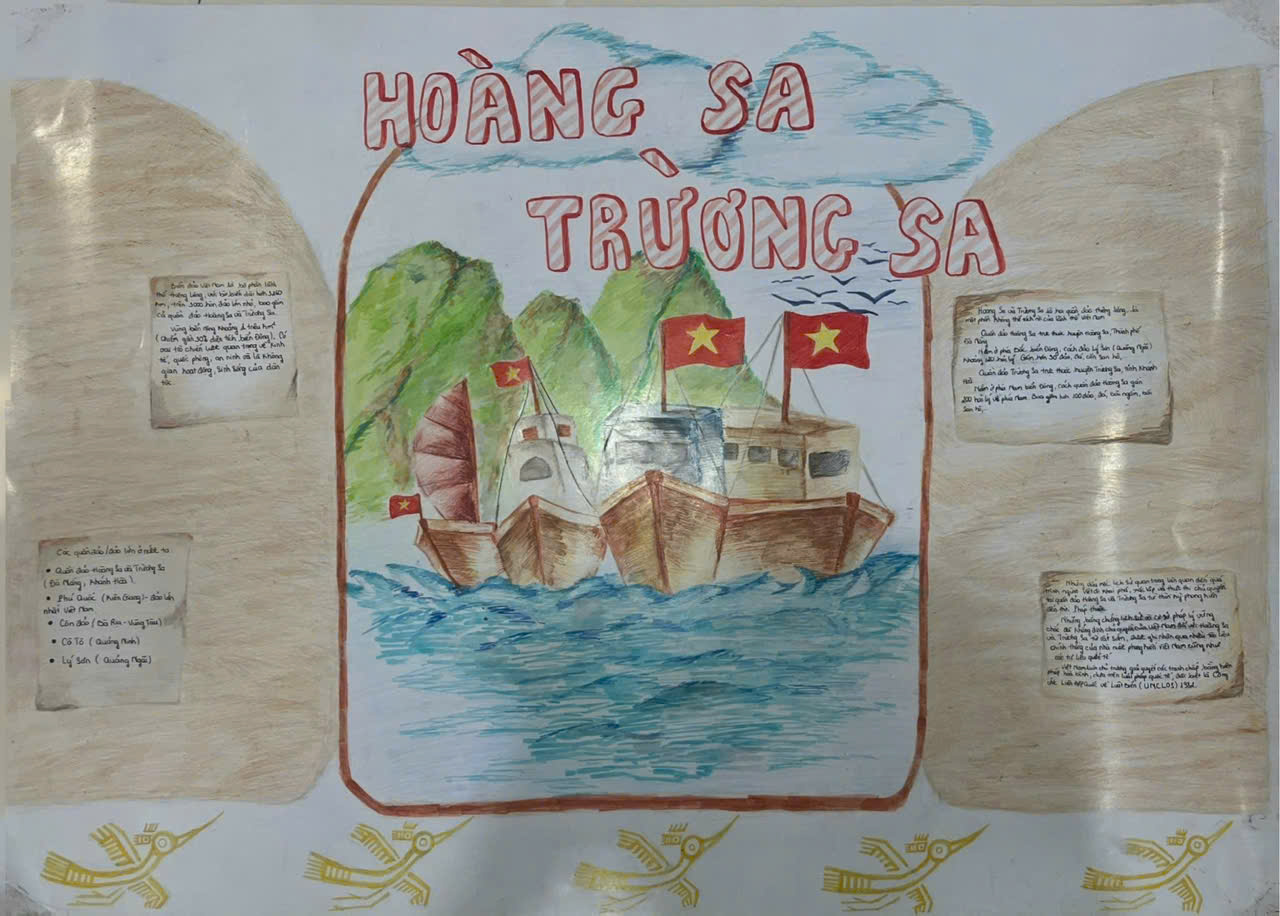 HOÀNG SA
TRƯỜNG SA
Biển đảo Việt Nam là bộ phận lãnh
thổ thiêng liêng, với bờ biển dài hơn 3260
km, trên 3000 hòn đảo lớn nhỏ, bao gồm
cả quần đảo Hoàng Sa và Trường Sa.
Vùng biển rộng khoảng 1 triệu km²
(chiếm gần 30% diện tích biển Đông). Có
vai trò chiến lược quan trọng về kinh
tế, quốc phòng, an ninh và là không
gian hoạt động, sinh sống của dân
tộc.
Các quần đảo/đảo lớn ở nước ta
• Quần đảo Hoàng Sa và Trường Sa
(Đà Nẵng, Khánh Hòa).
• Phú Quốc (Kiên Giang) - đảo lớn
nhất Việt Nam
• Côn đảo (Bà Rịa - Vũng Tàu)
• Cô Tô (Quảng Ninh)
• Lý Sơn (Quảng Ngãi)
Hoàng Sa và Trường Sa là hai quần đảo thiêng liêng, là
một phần không thể tách rời của lãnh thổ Việt Nam
Quần đảo Hoàng Sa trực thuộc huyện Hoàng Sa, Thành phố
Đà Nẵng
Nằm ở phía Bắc biển Đông, cách đảo Lý Sơn (Quảng Ngãi)
khoảng 120 hải lý. Gồm hơn 30 đảo, đá, cồn san hô,
Quần đảo Trường Sa trực thuộc huyện Trường Sa, tỉnh Khánh
Hoà
Nằm ở phía Nam biển Đông, cách quần đảo Hoàng Sa gần
200 hải lý về phía Nam. Bao gồm hơn 100 đảo, đá, bãi ngầm, bãi
san hô,...
Những dấu mốc lịch sử quan trọng liên quan đến quá
trình người Việt đi khai phá, xác lập và thực thi chủ quyền
tại quần đảo Hoàng Sa và Trường Sa từ thời kỳ phong kiến
đến thời Pháp thuộc.
Những bằng chứng lịch sử và cơ sở pháp lý vững
chắc để khẳng định chủ quyền của Việt Nam đối với Hoàng Sa
và Trường Sa từ rất sớm, được ghi nhận qua nhiều tài liệu
chính thống của nhà nước phong kiến Việt Nam cũng như
các tư liệu quốc tế
Việt Nam luôn chủ trương giải quyết các tranh chấp bằng biện
pháp hoà bình, dựa trên luật pháp quốc tế, đặc biệt là Công
ước Liên Hợp Quốc về Luật Biển (UNCLOS) 1982